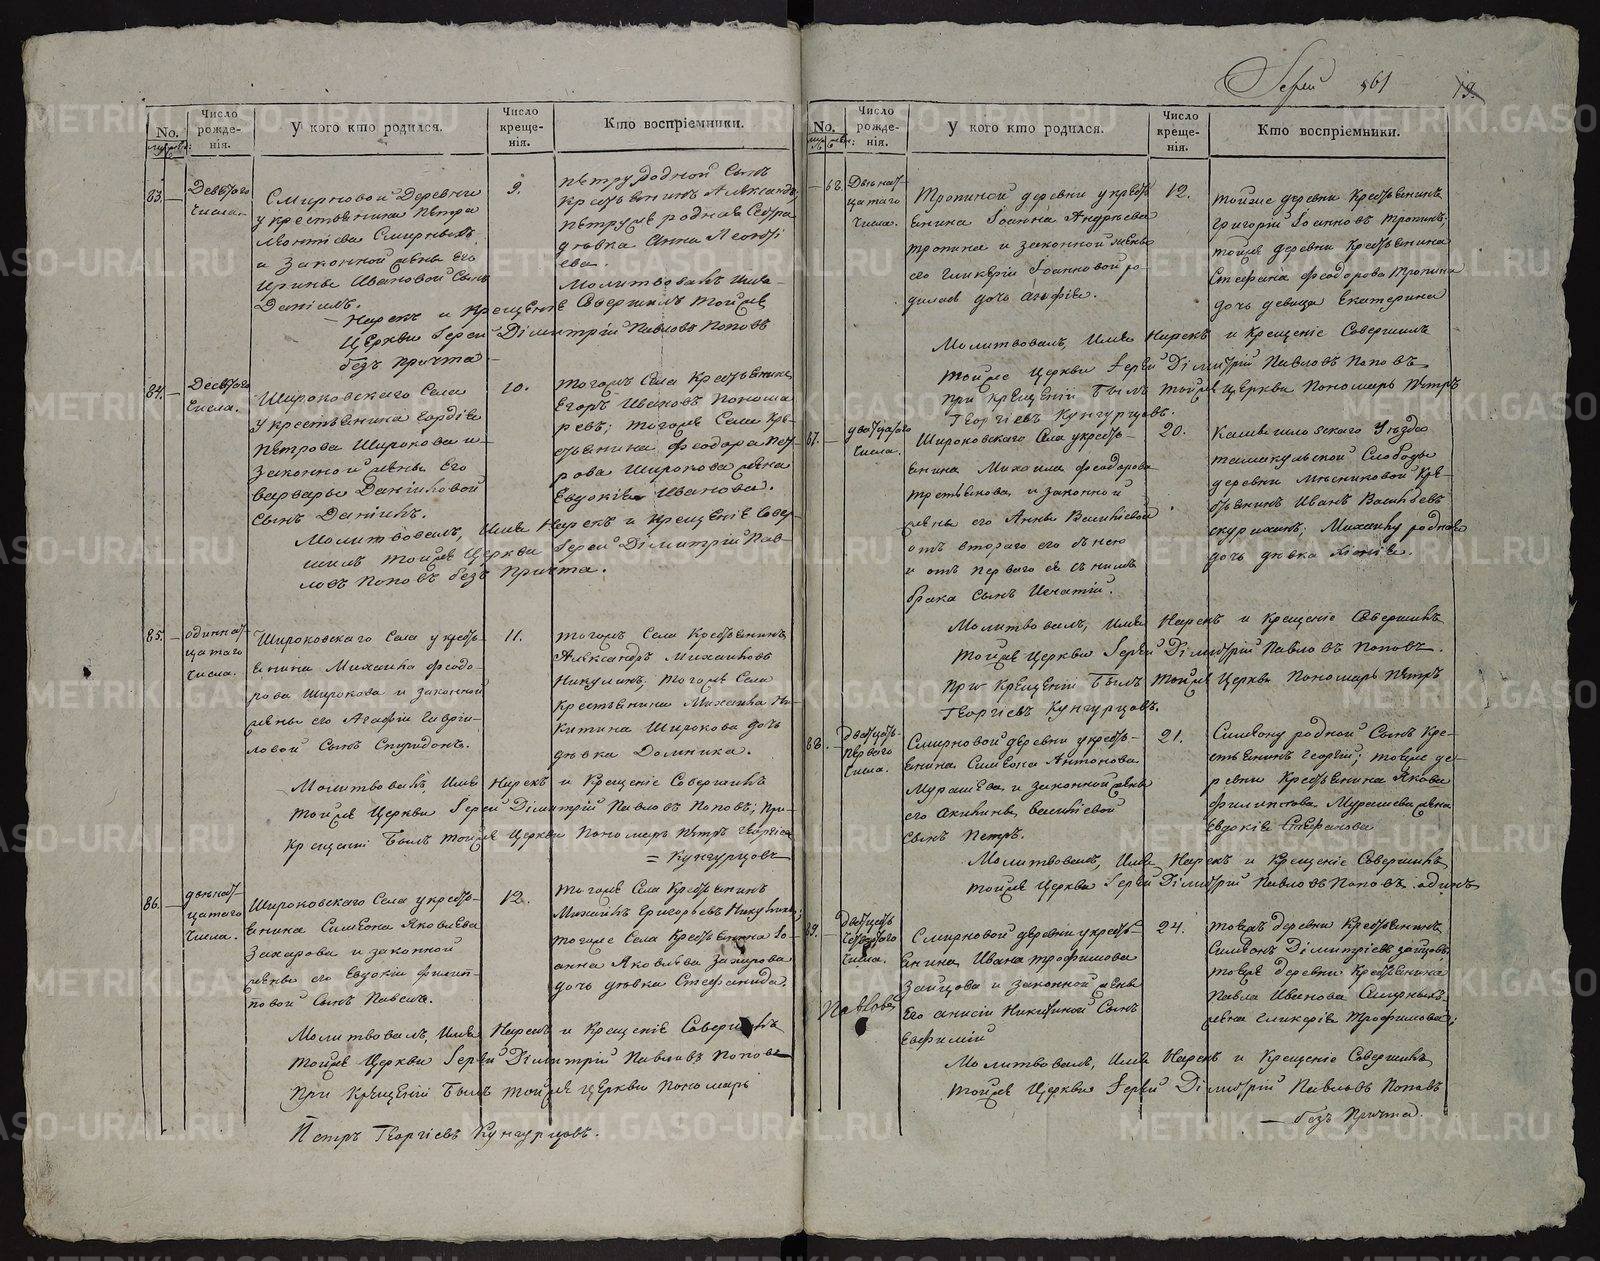 Іерей 561 19.
No.
Число рожде-нія.
У кого кто родился.
Число креще-нія.
Кто воспріемники.
83.
Девятаго
числа.
Смирновой деревни
у крестьянина Петра
Леонтіева Смирныхъ
и законной жены его
Ирины Ивановой сынъ
Даніилъ.
9.
Петру родной сынъ
крестьянинъ Александръ,
Петру же родная сестра
дѣвка Анна Леонті
ева.
Молитвовалъ имя
Нарекъ и крещеніе совершилъ тойже
церкви Іерей Дімитрій Павловъ Поповъ
безъ причта
84.
Десятаго
числа.
Широковскаго села
у крестьянина Гордія
Петрова Широкова и
законной жены его
Варвары Даніиловой
сынъ Даніилъ.
10.
тогожъ села крестьянинъ
Егоръ Ивановъ Понома
ревъ; тогоже села кре-
стьянина Феодора Пет-
рова Широкова жена
Евдокія Иванова.
Молитвовалъ, имя нарекъ и крещеніе совер-
шилъ тойже церкви Іерей Дімитрій Пав-
ловъ Поповъ безъ причта.
85.
одиннат-
цатаго
числа.
Широковскаго села у кресть-
янина Михаила Феодо-
рова Широкова и законной
жены его Агафіи Гаврії-
ловой сынъ Спиридонъ.
11.
тогожъ села крестьянинъ
Александръ Михаиловъ
Никулинъ; тогоже села
крестьянина Михаила Ни-
китина Широкова дочь
дѣвка Домника.
Молитвовалъ, имя нарекъ и крещеніе совершилъ
тойже церкви Іерей Дімитрій Павловъ Поповъ; при-
крещеніи былъ тойже церкви пономарь Петръ Георгіев
= Кунгурцовъ
86.
двенат-
цатаго
числа.
Широковскаго села у кресть-
янина Симеона Яковлева
Захарова и законной
жены его Евдокіи Филип-
повой сынъ Павелъ.
12.
тогоже села крестьянинъ
Михаилъ Григорьевъ Никулинъ;
тогоже села крестьянина Іо-
анна Яковлева Захарова
дочь дѣвка Стефанида.
Молитвовалъ, имя нарекъ и крещеніе совершилъ
тойже церкви Іерей Дімитрій Павловъ Поповъ
при крещеніи былъ тойже церкви пономарь
Петръ Георгіевъ Кунгурцовъ.
No.
Число рожде-нія.
У кого кто родился.
Число креще-нія.
Кто воспріемники.
68.
Двенат-
цатаго
числа.
Тропиной деревни у кресть
янина Іоанна Андреева
Тропина и законной жены
его Гликеріи Іоанновой ро-
дилась дочь Агафія.
12.
тойже деревни крестьянинъ
Григорій Іоанновъ Тропинъ;
тойже деревни крестьянина
Стефана Феодорова Тропина
дочь девица Екатерина
Молитвовалъ, имя нарекъ и крещеніе совершилъ
тойже церкви Іерей Дімитрій Павловъ Поповъ
при крещеніи былъ тойже церкви пономарь Петръ
Георгіевъ Кунгурцовъ.
87.
дватцатаго
числа.
Широковскаго села у кресть-
янина Михаила Феодорова
Третьякова и законной
жены его Анны Васильевой
отъ втораго его съ нею
и отъ перваго ея съ нимъ
брака сынъ Игнатій.
20.
Камышловскаго уѣзда
Тамакульской слободы
деревни Мясниковой кре-
стьянинъ Иванъ Васильевъ
Скурихинъ; Михаилу родная
дочь дѣвка Ксенія.
Молитвовалъ, имя нарекъ и крещеніе совершилъ
тойже церкви Іерей Дімитрій Павловъ Поповъ.
при крещеніи былъ тойже церкви пономарь Петръ
Георгіевъ Кунгурцовъ.
88.
дватцать
перваго
числа.
Смирновой деревни у кресть-
янина Симеона Антонова
Мурашева и законной жены
его Акилины Васильевой
сынъ Петръ.
21.
Симеону родной сынъ кре-
стьянинъ Георгій; тояже де-
ревни крестьянина Якова
Филиппова Мурашева жена
Евдокія Стефанова
Молитвовалъ, имя нарекъ и крещеніе совершилъ
тойже церкви Іерей Дімитрій Павловъ Поповъ одинъ
89.
дватцать
четвертаго
числа.
Павловъ
Смирновой деревни у кресть-
янина Ивана Трофимова
Зайцова и законной жены
его Анисіи Никитиной сынъ
Евфимій
24.
тояжъ деревни крестьянинъ
Симеонъ Дімитріевъ Зайцовъ,
тояже деревни крестьянина
Павла Иванова Смирныхъ
жена Гликерія Трофимова;
Молитвовалъ, имя нарекъ и крещеніе совершилъ
тойже церкви Іерей Дімитрій Павловъ Поповъ
— безъ причта.
METRIKI.GASO-URAL.RU